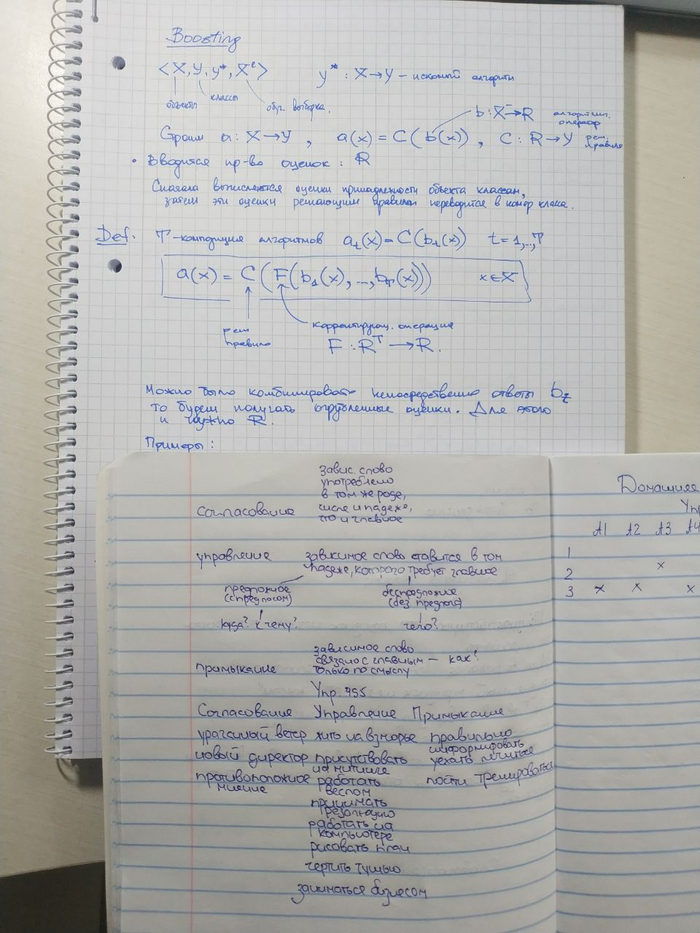 Boosting
<X, Y, y*, Xˡ>
y* : X→Y – искомый алгоритм
объекты
классы
обуч. выборка.
b : X→R алгоритмич. оператор
Строим a : X→Y , a(x) = C(b(x)) , C : R→Y реш. правило
• Вводится пр-во оценок : R
Сначала вычисляются оценки принадлежности объекта классам,
затем эти оценки решающим правилом переводится в номер класса.
Def. T-композиция алгоритмов a_t(x) = C(b_t(x)) t = 1,..,T
a(x) = C(F(b₁(x),...,b_T(x))) x∈X
реш правило
корректирующ. операция
F : Rᵀ → R.
Можно было комбинировать непосредственно ответы b_t
то будем получать огрубленные оценки. Для этого
и нужно R.
Примеры :
завис слово
употреблено
в том же роде,
числе и падеже,
Согласование что и главное
управление зависимое слово ставится в том
падеже, которого требует главное
предложное беспредложное
(с предлогом) (без предлога)
куда? к чему? чего?
зависимое слово
связано с главным – как?
примыкание только по смыслу
Упр 455
Согласование Управление Примыкание
ураганный ветер жить на взморье правильно
информировать
новый директор присутствовать уехать лечиться
на митинге
противоположное работать почти тренироваться
мнение веслом
принимать
резолюцию
работать на
компьютере
рисовать план
чертить тушью
заниматься бизнесом
Домашнее
Упр
A1 A2 A3 A4
1
2 x
3 x x x